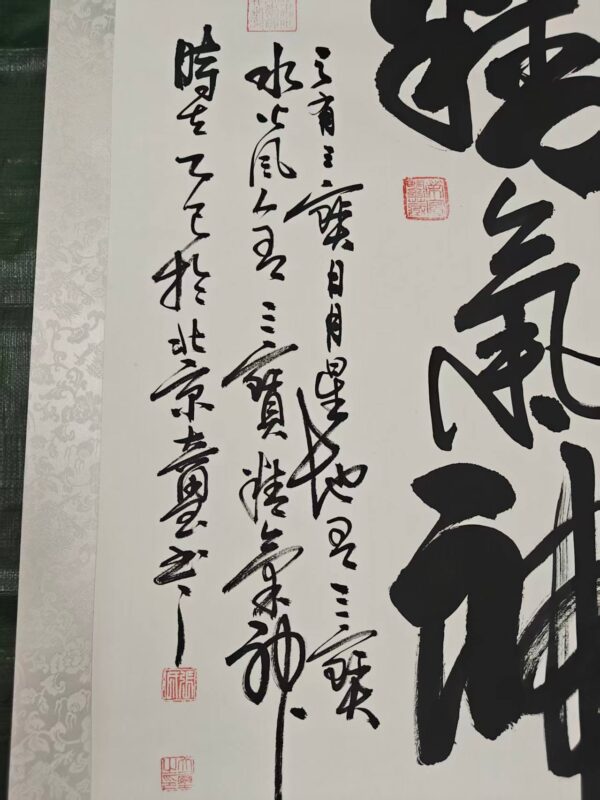 精氣神
天有三寶日月星地有三寶
水火風人有三寶精氣神
時在乙巳於北京书